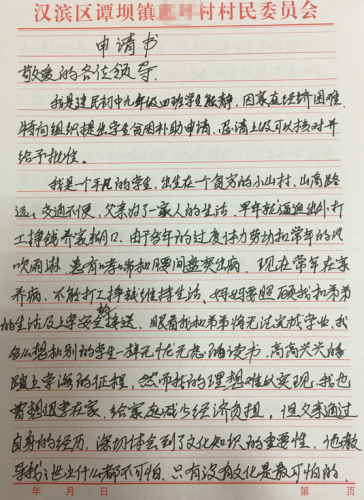 汉滨区谭坝镇 村村民委员会
申请书
敬爱的各位领导.
我是建民初中九年级四班学生 静, 因家庭经济困难.
特向组织提出学生贫困补助申请, 恳请上级可以核对并
给予批准。
我是一个平凡的学生, 出生在一个贫穷的小山村, 山高路
远、交通不便, 父亲为了一家人的生活, 早年就逼迫出外打
工挣钱养家糊口, 由于多年的过度体力劳动和常年的风
吹雨淋, 患有哮喘和腰间盘突出病, 现在常年在家
养病, 不能打工挣钱维持生活, 妈妈要照顾我和弟弟
的生活及上学安全接送, 眼看我和弟弟将无法完成学业, 我
多么想和别的学生一样无忧无虑的读书, 高高兴兴的
踏上学海的征程, 然而我的理想难以实现, 我也
曾想退学在家, 给家庭减少经济负担, 但父亲通过
自身的经历, 深切体会到了文化知识的重要性, 也教
导我: 世上什么都不可怕, 只有没有文化是最可怕的,
年 月 日 第 页